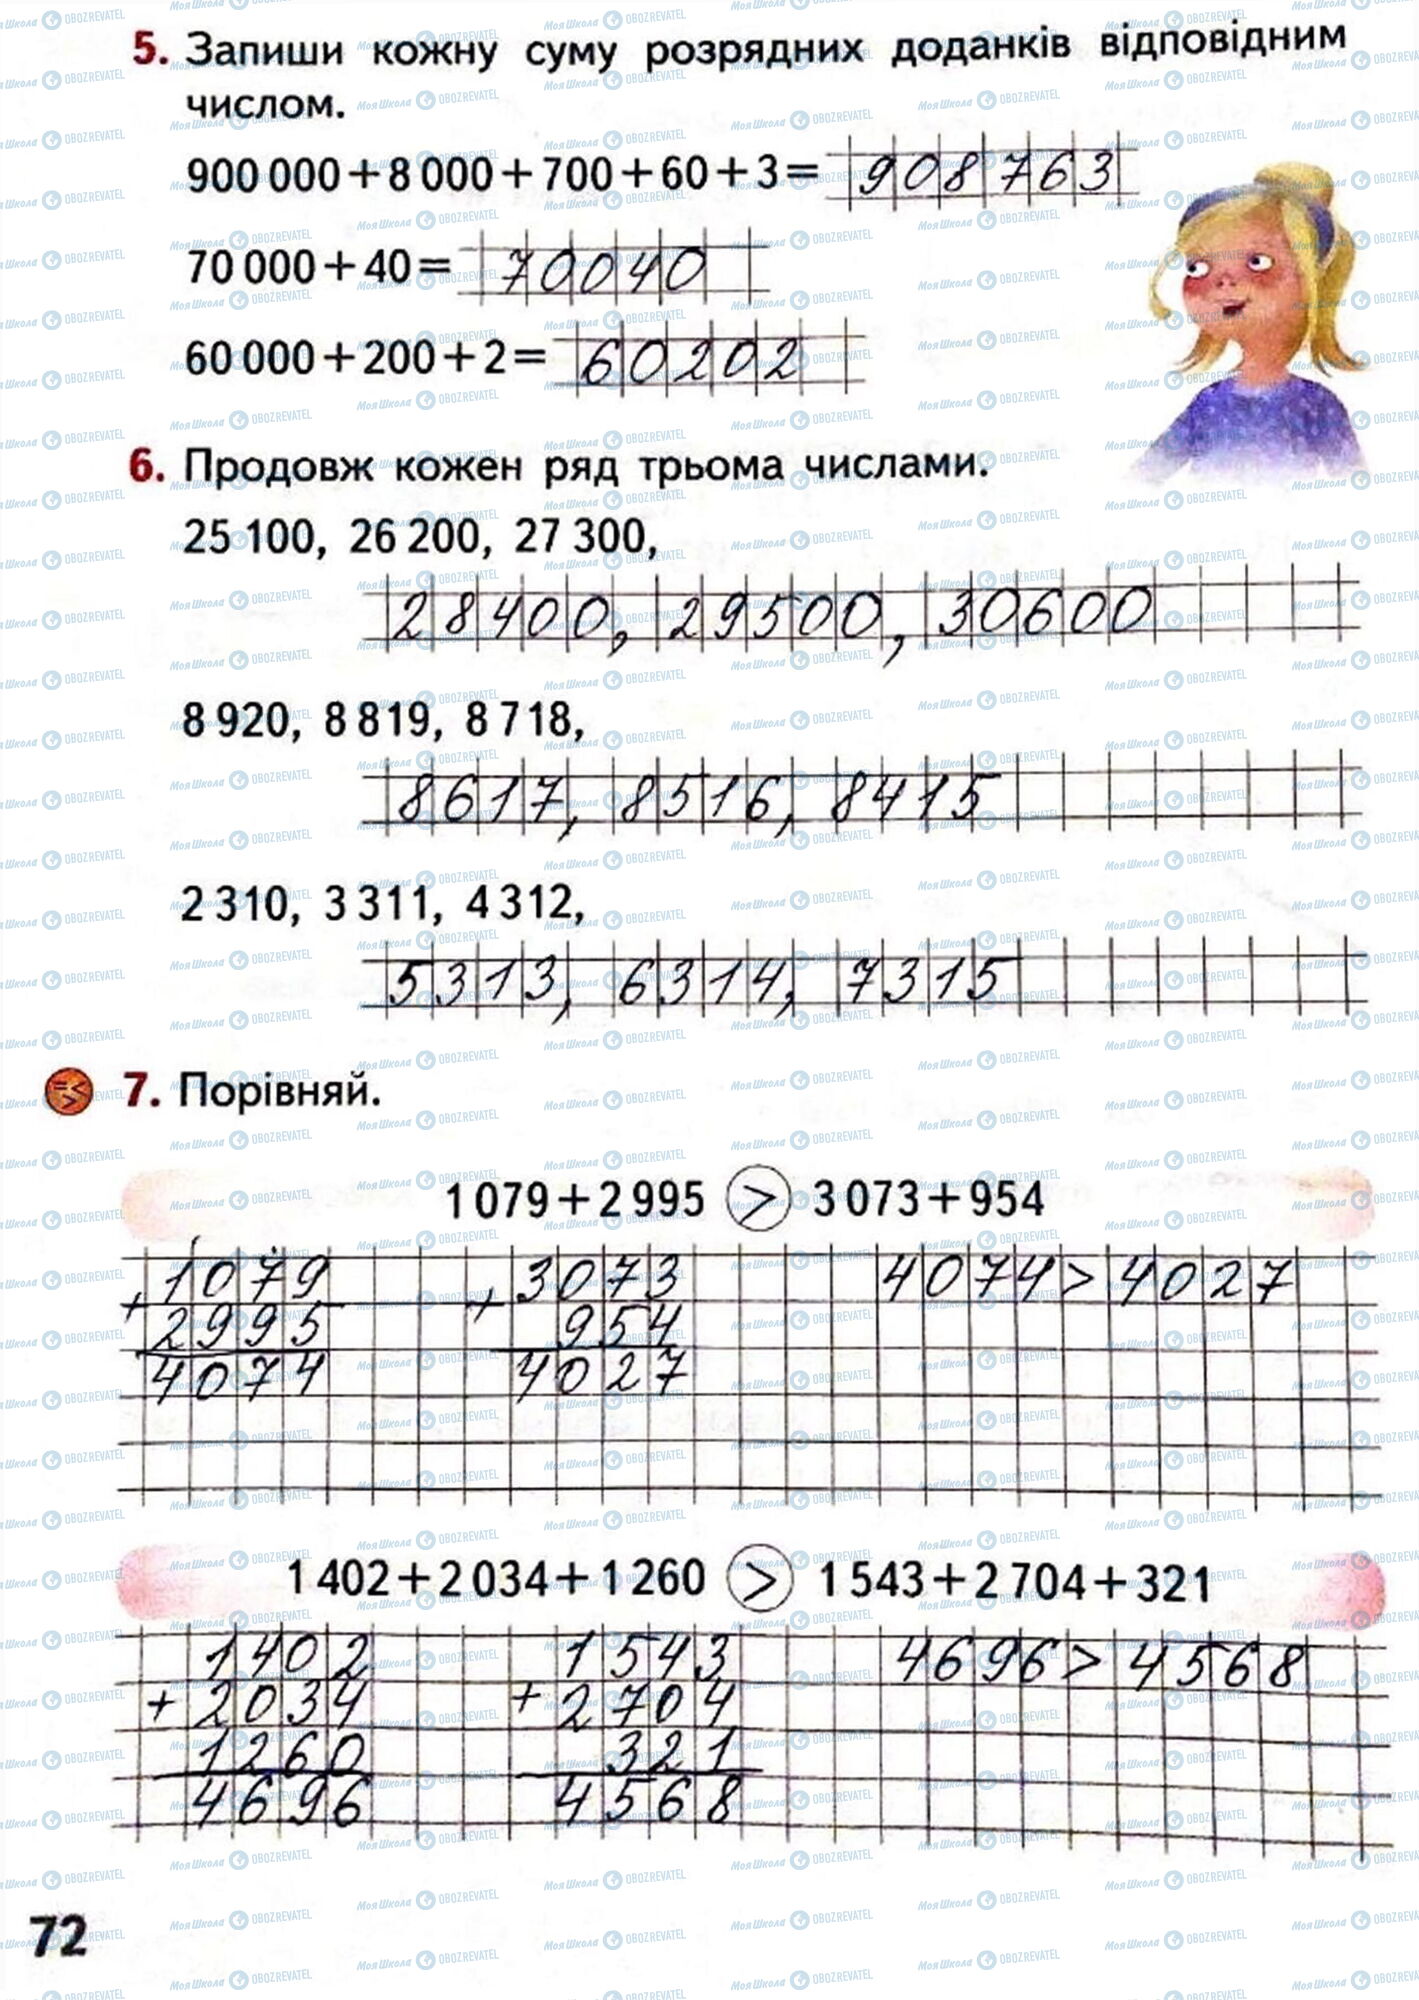 5. Запиши кожну суму розрядних доданків відповідним
числом.
900 000 + 8 000 + 700 + 60 + 3 = 908763
70 000 + 40 = 70040
60 000 + 200 + 2 = 60202
6. Продовж кожен ряд трьома числами.
25 100, 26 200, 27 300,
28400, 29500, 30600
8 920, 8 819, 8 718,
8617, 8516, 8415
2 310, 3 311, 4 312,
5313, 6314, 7315
7. Порівняй.
1 079 + 2 995 > 3 073 + 954
1079 3073 4074 > 4027
+ 2995 + 954
4074 4027
1 402 + 2 034 + 1 260 > 1 543 + 2 704 + 321
1402 1543 4696 > 4568
+ 2034 + 2704
1260 321
4696 4568
72
МояШкола OBOZREVATEL